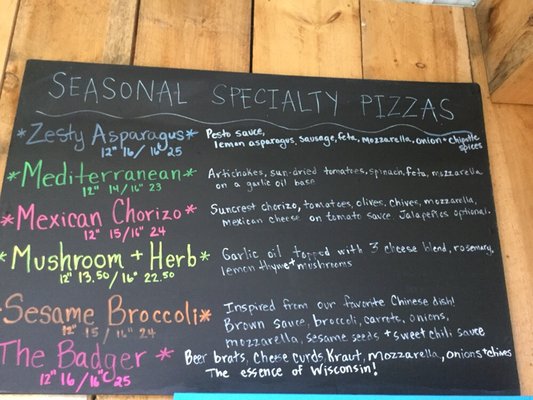 SEASONAL SPECIALTY PIZZAS
*Zesty Asparagus*
12" 16/ 16" 25
Pesto sauce,
lemon asparagus, Sausage, feta, mozzarella, onion + chipotle
spices
*Mediterranean*
12" 14/16" 23
Artichokes, sun-dried tomatoes, spinach, feta, mozzarella
on a garlic oil base
*Mexican Chorizo*
12" 15/16" 24
Suncrest chorizo, tomatoes, olives, chives, mozzarella,
mexican cheese on tomato sauce. Jalapeños optional.
*Mushroom + Herb*
12" 13.50/16" 22.50
Garlic oil topped with 3 cheese blend, rosemary,
lemon thyme + mushrooms
*Sesame Broccoli*
12" 15/16" 24
Inspired from our favorite Chinese dish!
Brown sauce, broccoli, carrots, onions,
mozzarella, sesame seeds + sweet chili sauce
The Badger *
12" 16/16" 25
Beer brats, Cheese curds, Kraut, mozzarella, onions + chives
The essence of Wisconsin!